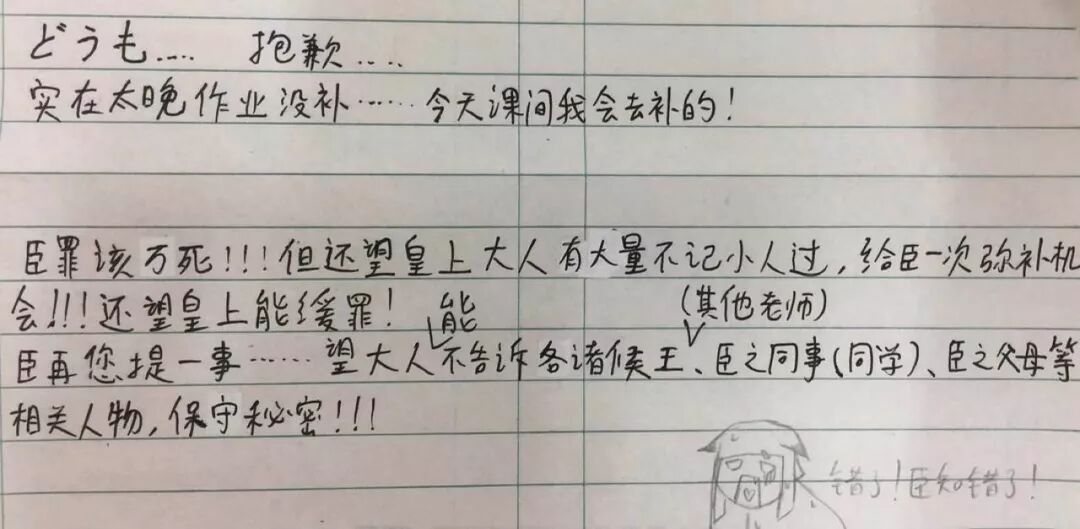 どうも.... 抱歉....
实在太晚作业没补……今天课间我会去补的!
臣罪该万死!!!但还望皇上大人有大量不记小人过,给臣一次弥补机
会!!!还望皇上能缓罪!
能 (其他老师)
臣再您提一事……望大人不告诉各诸候王、臣之同事(同学)、臣之父母等
相关人物,保守秘密!!!
错了!臣知错了!